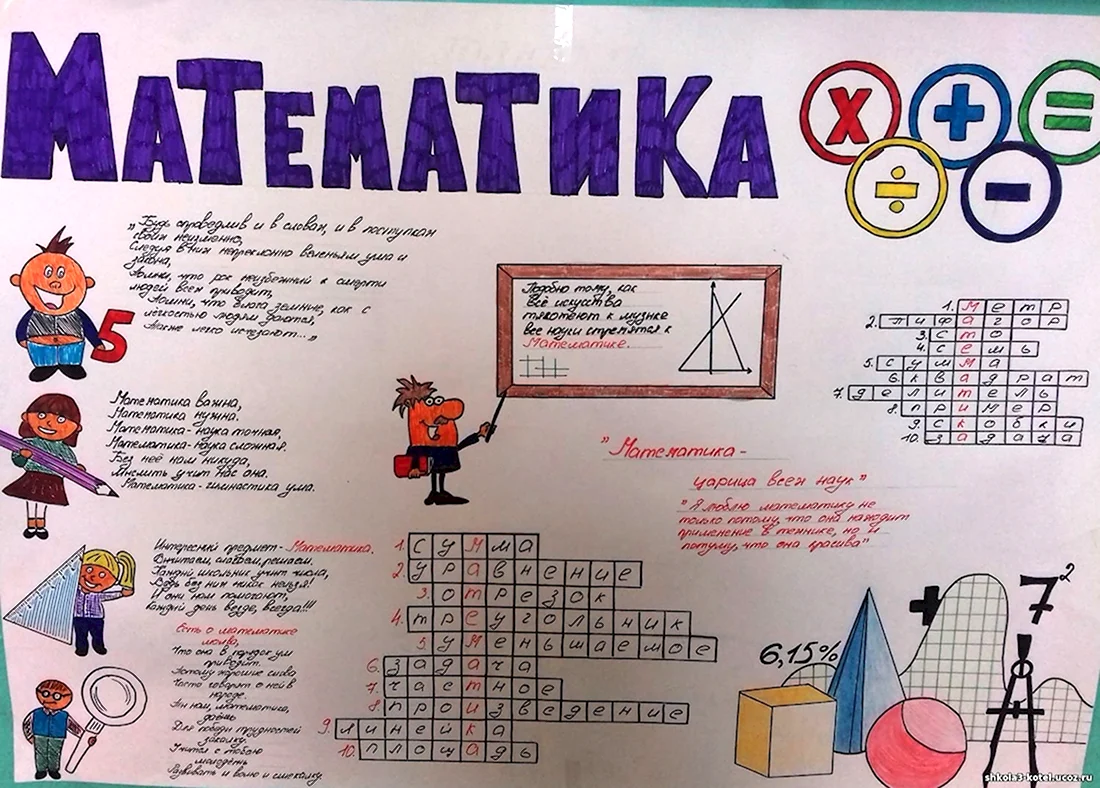 МАТЕМАТИКА
x + =
÷ -
„Будь справедлив и в словах, и в поступках
своих неизменно,
Следуя в них непреклонно веленьям ума и
закона,
Помни, что рок неизбежный к смерти
людей всех приводит,
Помни, что блага земные, как с
лёгкостью людям даются,
Также легко исчезают..."
5
Подобно тому, как
все искусства
тяготеют к музыке
все науки стремятся к
Математике.
1. метр
2. пифагор
3. сто
4. семь
5. сумма
6. квадрат
7. делитель
8. пример
9. скобки
10. задача
Математика важна,
Математика нужна.
Математика-наука точная,
Математика-наука сложная.
Без неё нам никуда,
Мыслить учит нас она.
Математика-гимнастика ума.
"Математика -
царица всех наук"
"Я люблю математику не
только потому, что она находит
применение в технике, но и
потому, что она красива"
Интересный предмет-Математика.
Считаем, слагаем, решаем.
Каждый школьник учит числа,
Ведь без них никак нельзя!
И они нам помогают,
Каждый день везде, всегда!!!
Есть о математике
молва,
Что она в порядок ум
приводит.
Потому хорошие слова
Часто говорят о ней в
народе.
Ты нам, математика,
даёшь
Для победы трудностей
закалку.
Учится с тобою
молодёжь
Развивать и волю и смекалку.
1. сумма
2. уравнение
3. отрезок
4. треугольник
5. уменьшаемое
6. задача
7. частное
8. произведение
9. линейка
10. площадь
+ 7²
6,15%
shkola3-kotel.ucoz.ru